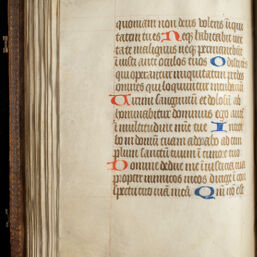 quoniam non deus volens iniqui
tatem tu es Neqz habitabit iux
ta te malignus neqz permanebūt
iniusti ante oculos tuos Odisti oēs
qui operantur iniquitatem perdes
omnes qui loquuntur mendacium
Virum sanguinum et dolosū ab
hominabitur dominus ego autē
in multitudine mīe tue Introi
bo in domū tuam adorabo ad tem
plum sanctū tuum in timore tuo
Domine deduc me in iusticia tua
propter inimicos meos dirige ī cōs
pectu tuo viā meā Qm̄ nō est